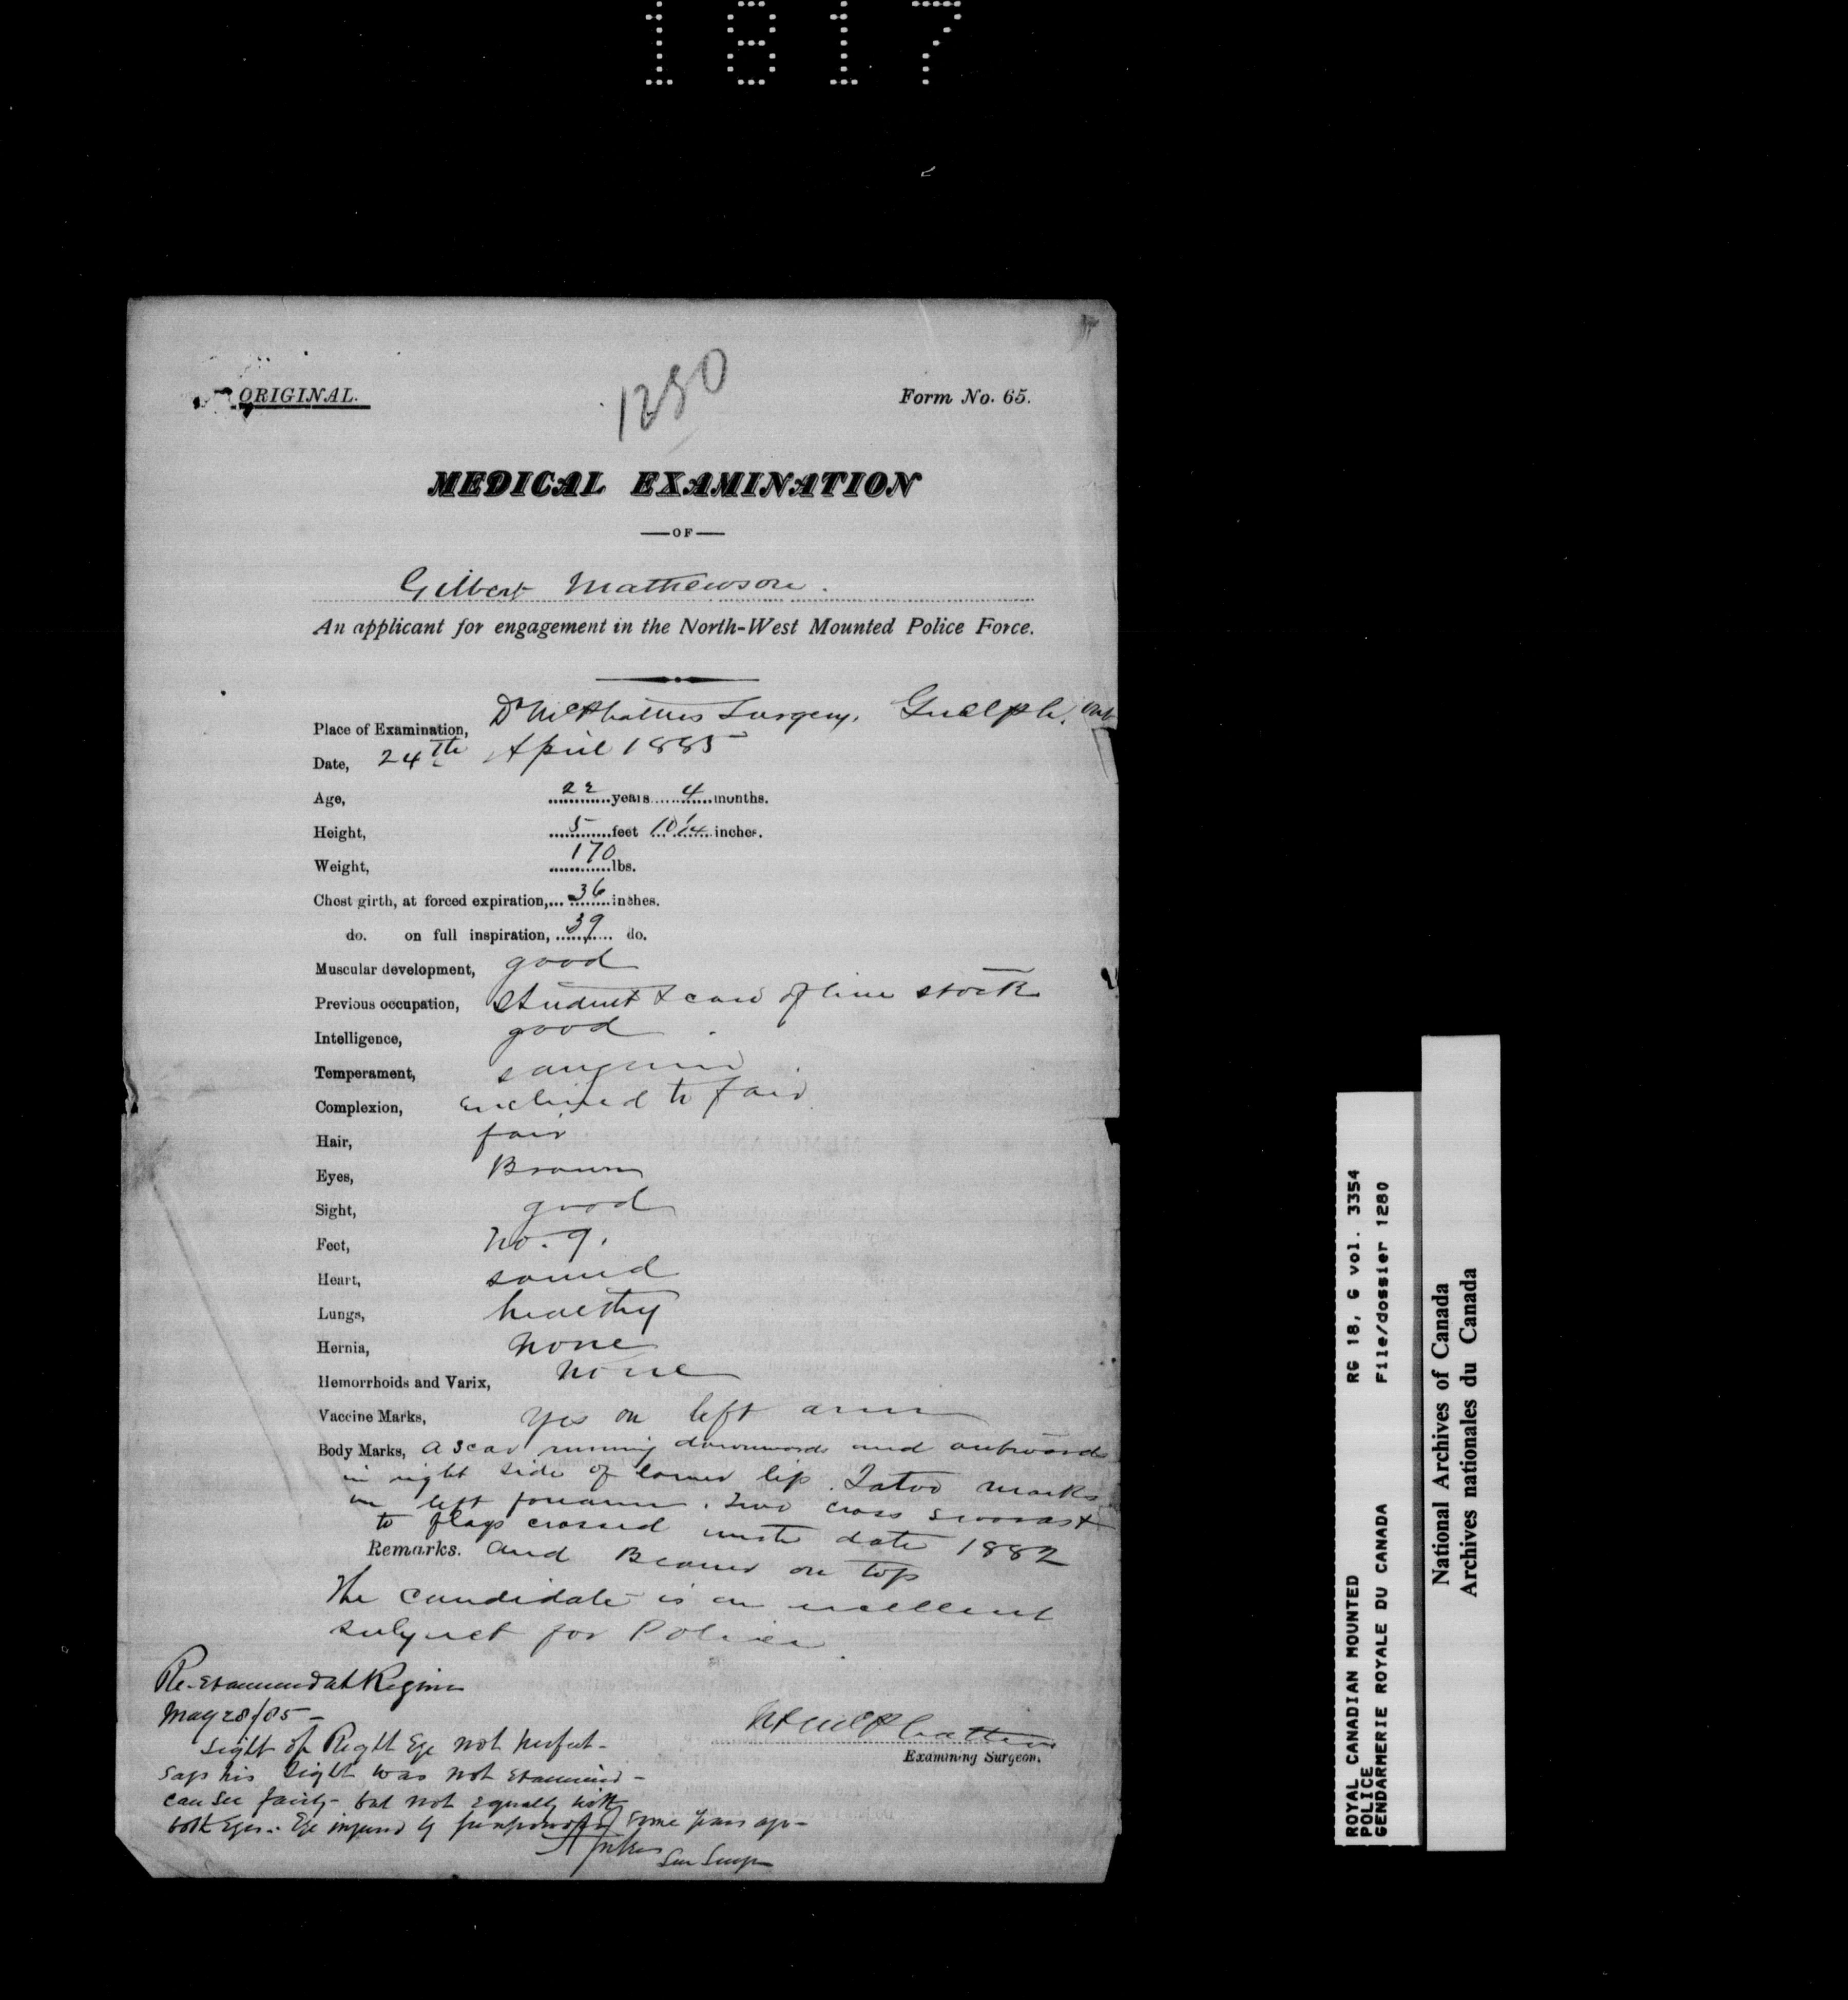 1817
ORIGINAL.
1280
Form No. 65.
MEDICAL EXAMINATION
—OF—
Gilbert Mathewson.
An applicant for engagement in the North-West Mounted Police Force.
Place of Examination, Dr McPhattus Surgery, Guelph, Ont
Date, 24th April 1885
Age, 22 years 4 months.
Height, 5 feet 10 1/4 inches.
Weight, 170 lbs.
Chest girth, at forced expiration,... 36 inches.
do. on full inspiration, 39 do.
Muscular development, good
Previous occupation, Student & care of live stock
Intelligence, good
Temperament, sanguin
Complexion, enclined to fair
Hair, fair
Eyes, Brown
Sight, good
Feet, No. 9.
Heart, sound
Lungs, healthy
Hernia, none
Hemorrhoids and Varix, none
Vaccine Marks, yes on left arm
Body Marks, a scar running downwards and outwards
in right side of lower lip. Tatoo marks
on left forearm. Two cross swords &
to flags crossed date 1882
Remarks. and Beaver on top
The candidate is an excellent
subject for Police
Re-examined at Regina
May 28/85 -
Sight of Right Eye not perfect -
says his sight was not examined -
can see fairly - but not equally with
both eyes. - Eye injured by gunpowder some years ago -
A Jukes
Sen Surgn
McPhatter
Examining Surgeon.
ROYAL CANADIAN MOUNTED RG 18, G vol. 3354
POLICE File/dossier 1280
GENDARMERIE ROYALE DU CANADA
National Archives of Canada
Archives nationales du Canada